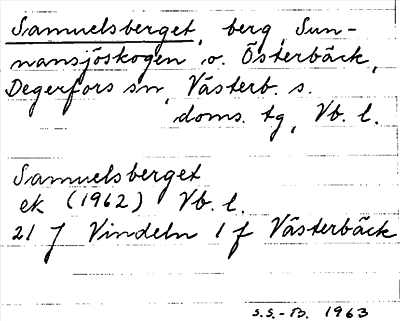 Samuelsberget, berg, Sun-
nansjöskogen o. Österbäck,
Degerfors sn, Västerb. s.
doms. tg, Vb. l.
Samuelsberget
ek (1962) Vb. l.
21 J Vindeln 1 f Västerbäck
S.S.-B. 1963